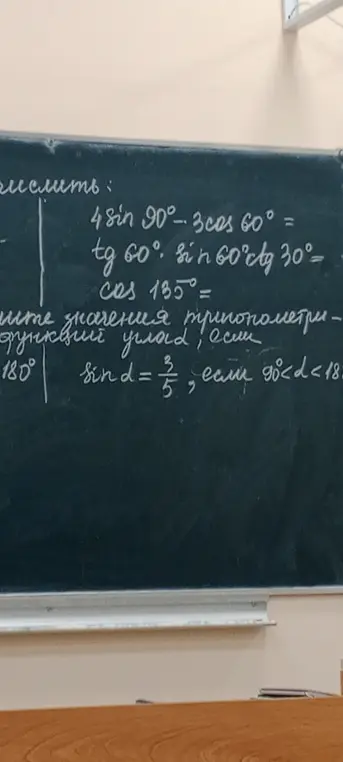 числить:
4 sin 90° - 3 cos 60° =
tg 60° · sin 60° ctg 30° =
cos 135° =
ите значения тригонометри-
функций угла α, если
180° sin α = 3/5, если 90° < α < 18